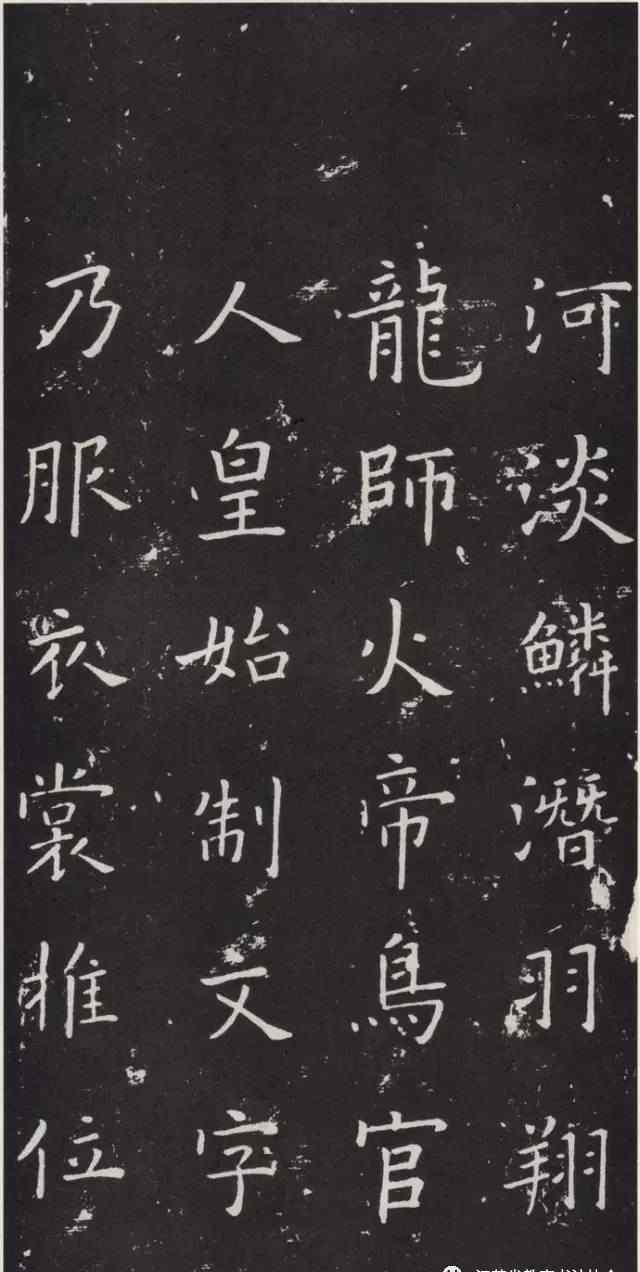 河淡鱗潛羽翔
龍師火帝鳥官
人皇始制文字
乃服衣裳推位